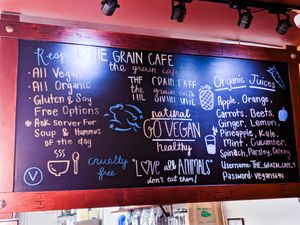 Respect THE GRAIN CAFE
the grain cafe
THE GRAIN CAFE
the grain cafe
· All Vegan
· All Organic
· Gluten & Soy
Free Options
* Ask server For
Soup & Hummus
of the day
cruelty
free
natural
GO VEGAN
healthy
"LOVE all ANIMALS"
don't eat them!
Organic Juices
Apple, Orange,
Carrots, Beets,
Ginger, Lemon,
Pineapple, Kale,
Mint, Cucumber
Spinach, Parsley, Celery
Username: The_Grain_Cafe
V